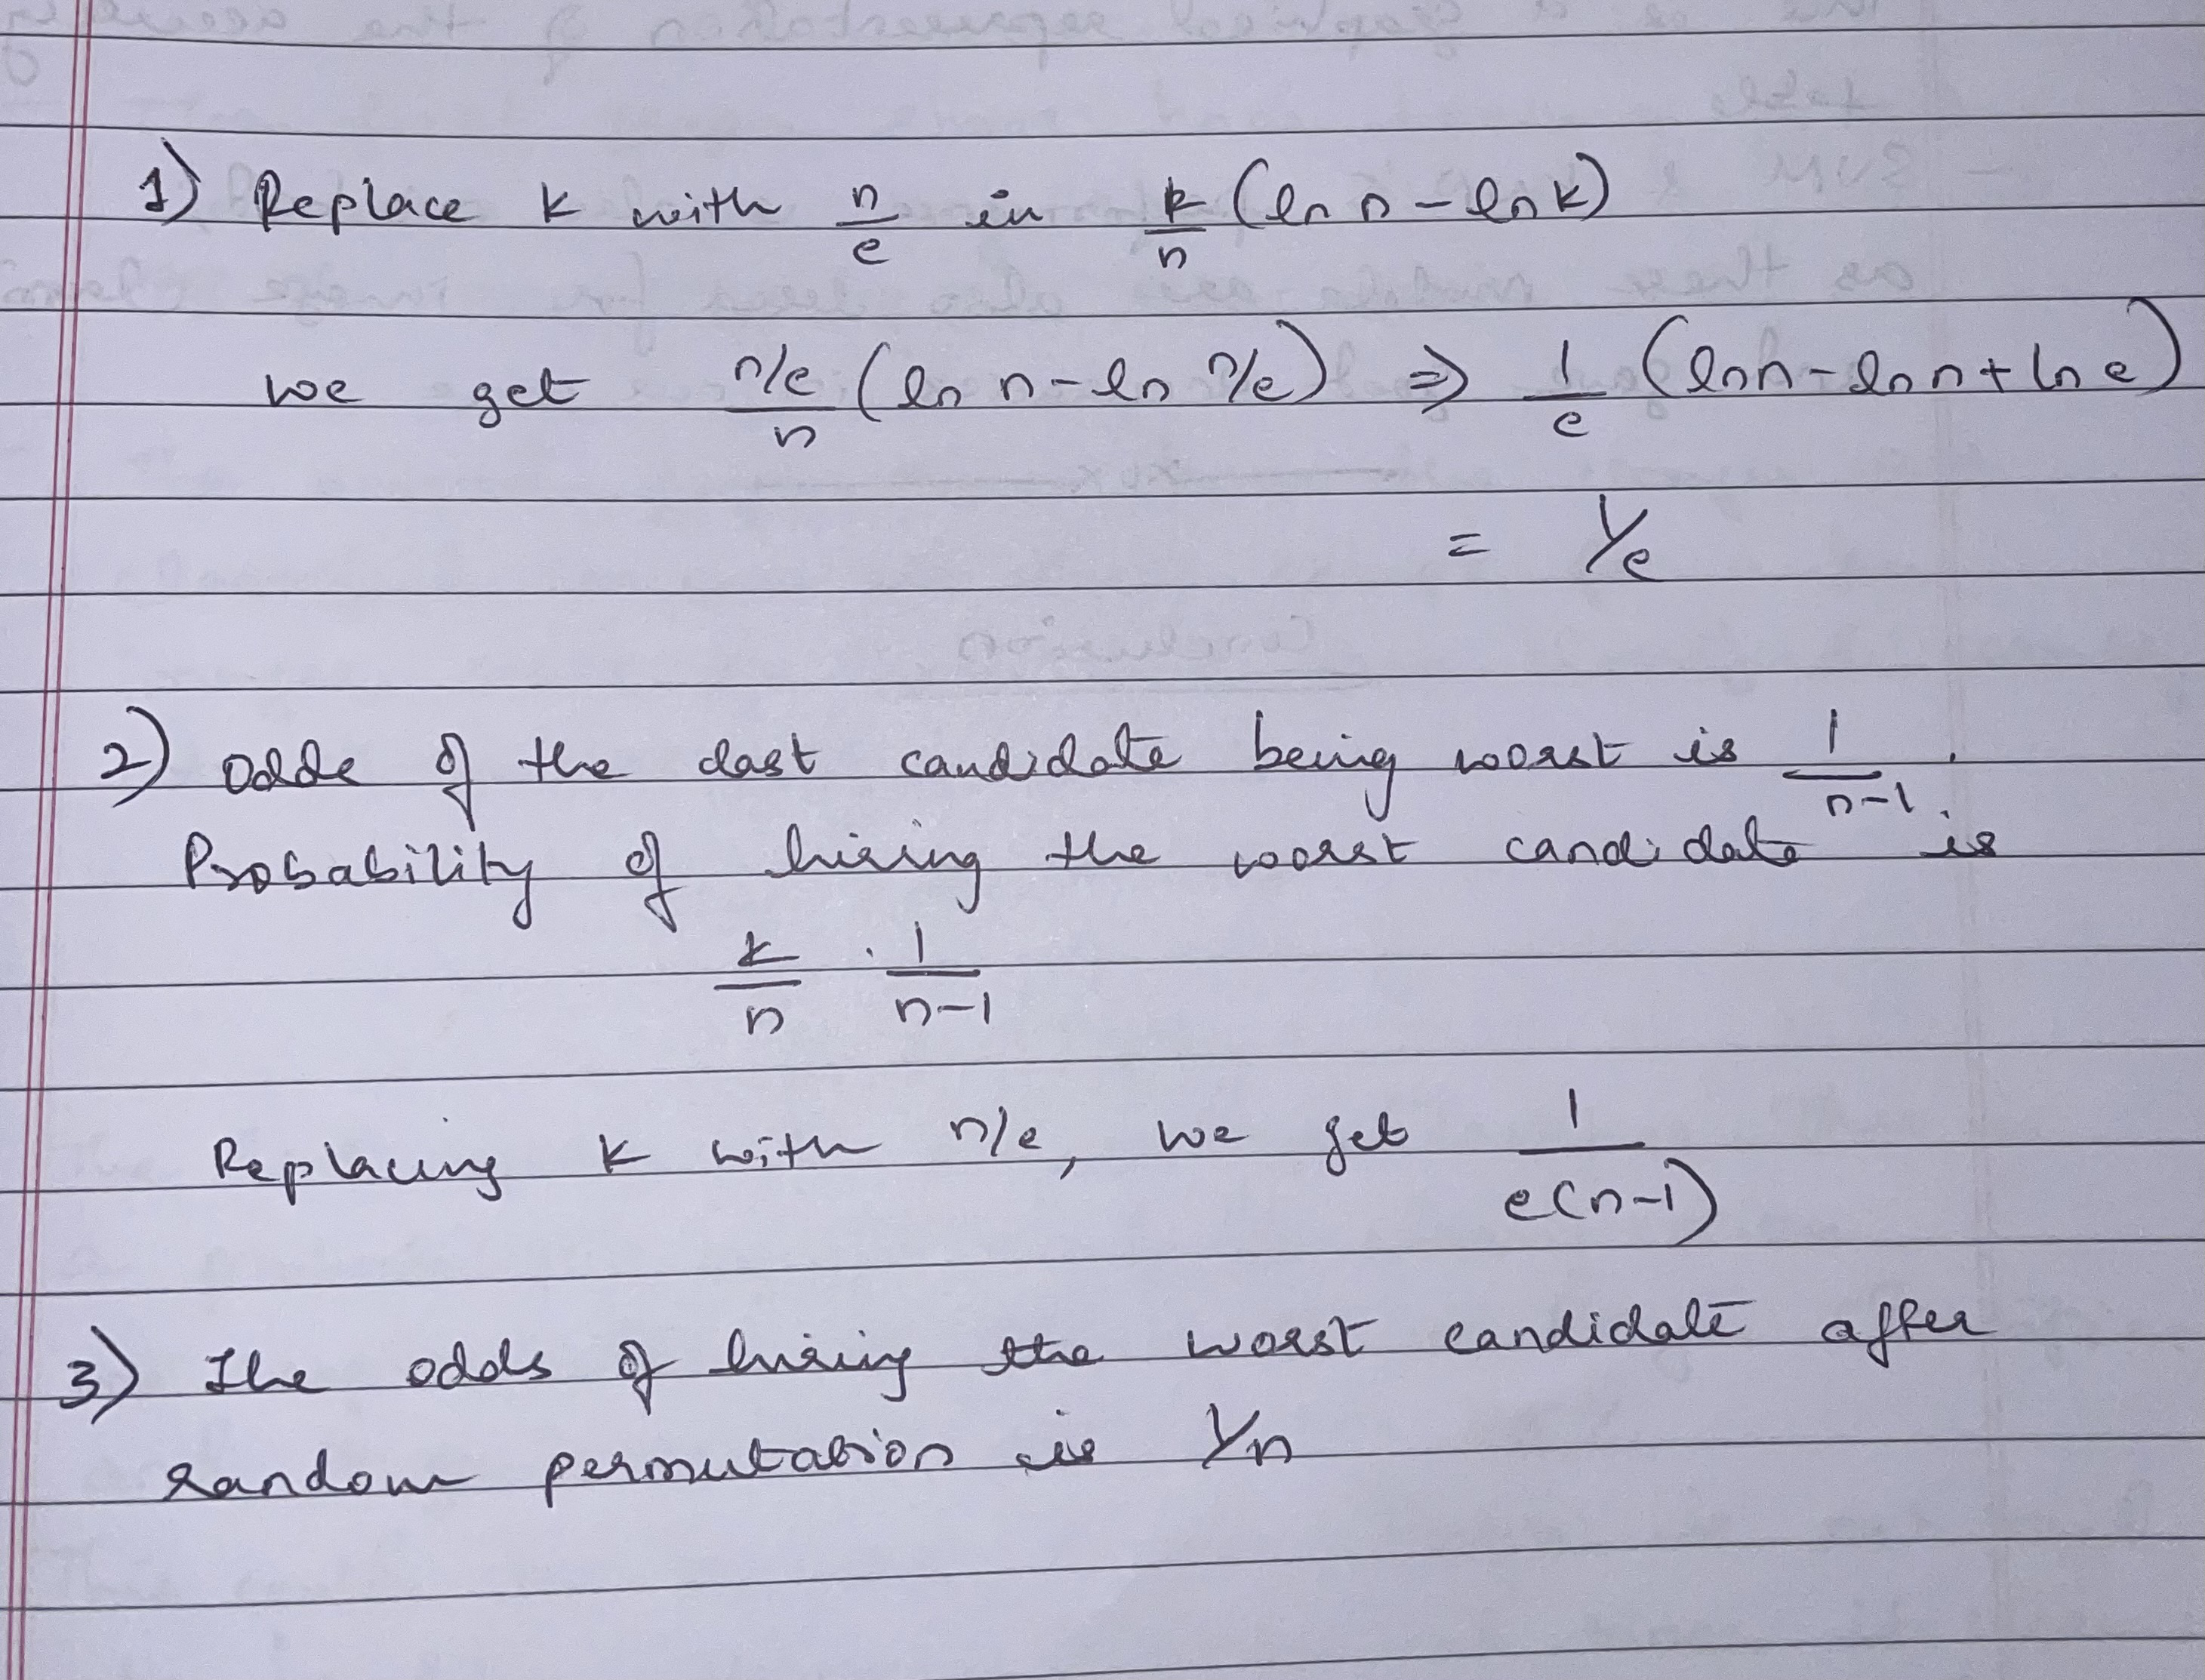 1) Replace k with n/e in k/n (ln n - ln k)
we get n/e/n (ln n - ln n/e) ⇒ 1/e (ln n - ln n + ln e)
= 1/e
2) Odds of the last candidate being worst is 1/n-1.
Probability of hiring the worst candidate is
k/n · 1/n-1
Replacing k with n/e, we get 1/e(n-1)
3) The odds of hiring the worst candidate after
random permutation is 1/n